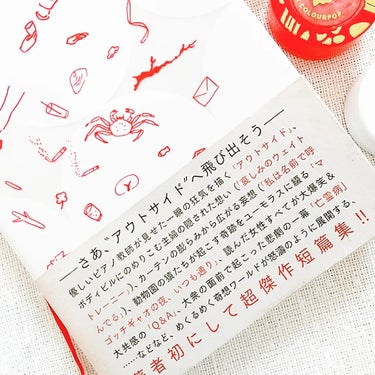 COLOURPOP
――さあ、“アウトサイド”へ飛び出そう――
優しいピアノ教師が見せた一瞬の狂気を描く(「アウトサイド」)、
ボディビルにのめりこむ主婦の隠された想い(「哀しみのウェイト
トレーニー」)、カーテンの膨らみから広がる妄想(「私は名前で呼
んでる」)、動物園の猿たちが起こす奇跡をユーモラスに綴る(「マ
ゴッチギャオの夜、いつも通り」)、読んだ女性すべてが大爆笑&
大共感の「Q&A」、大衆の面前で起こった悲劇の一幕「亡霊病」
……などなど、めくるめく奇想ワールドが怒濤のように展開する、
著者初にして超傑作短篇集!!